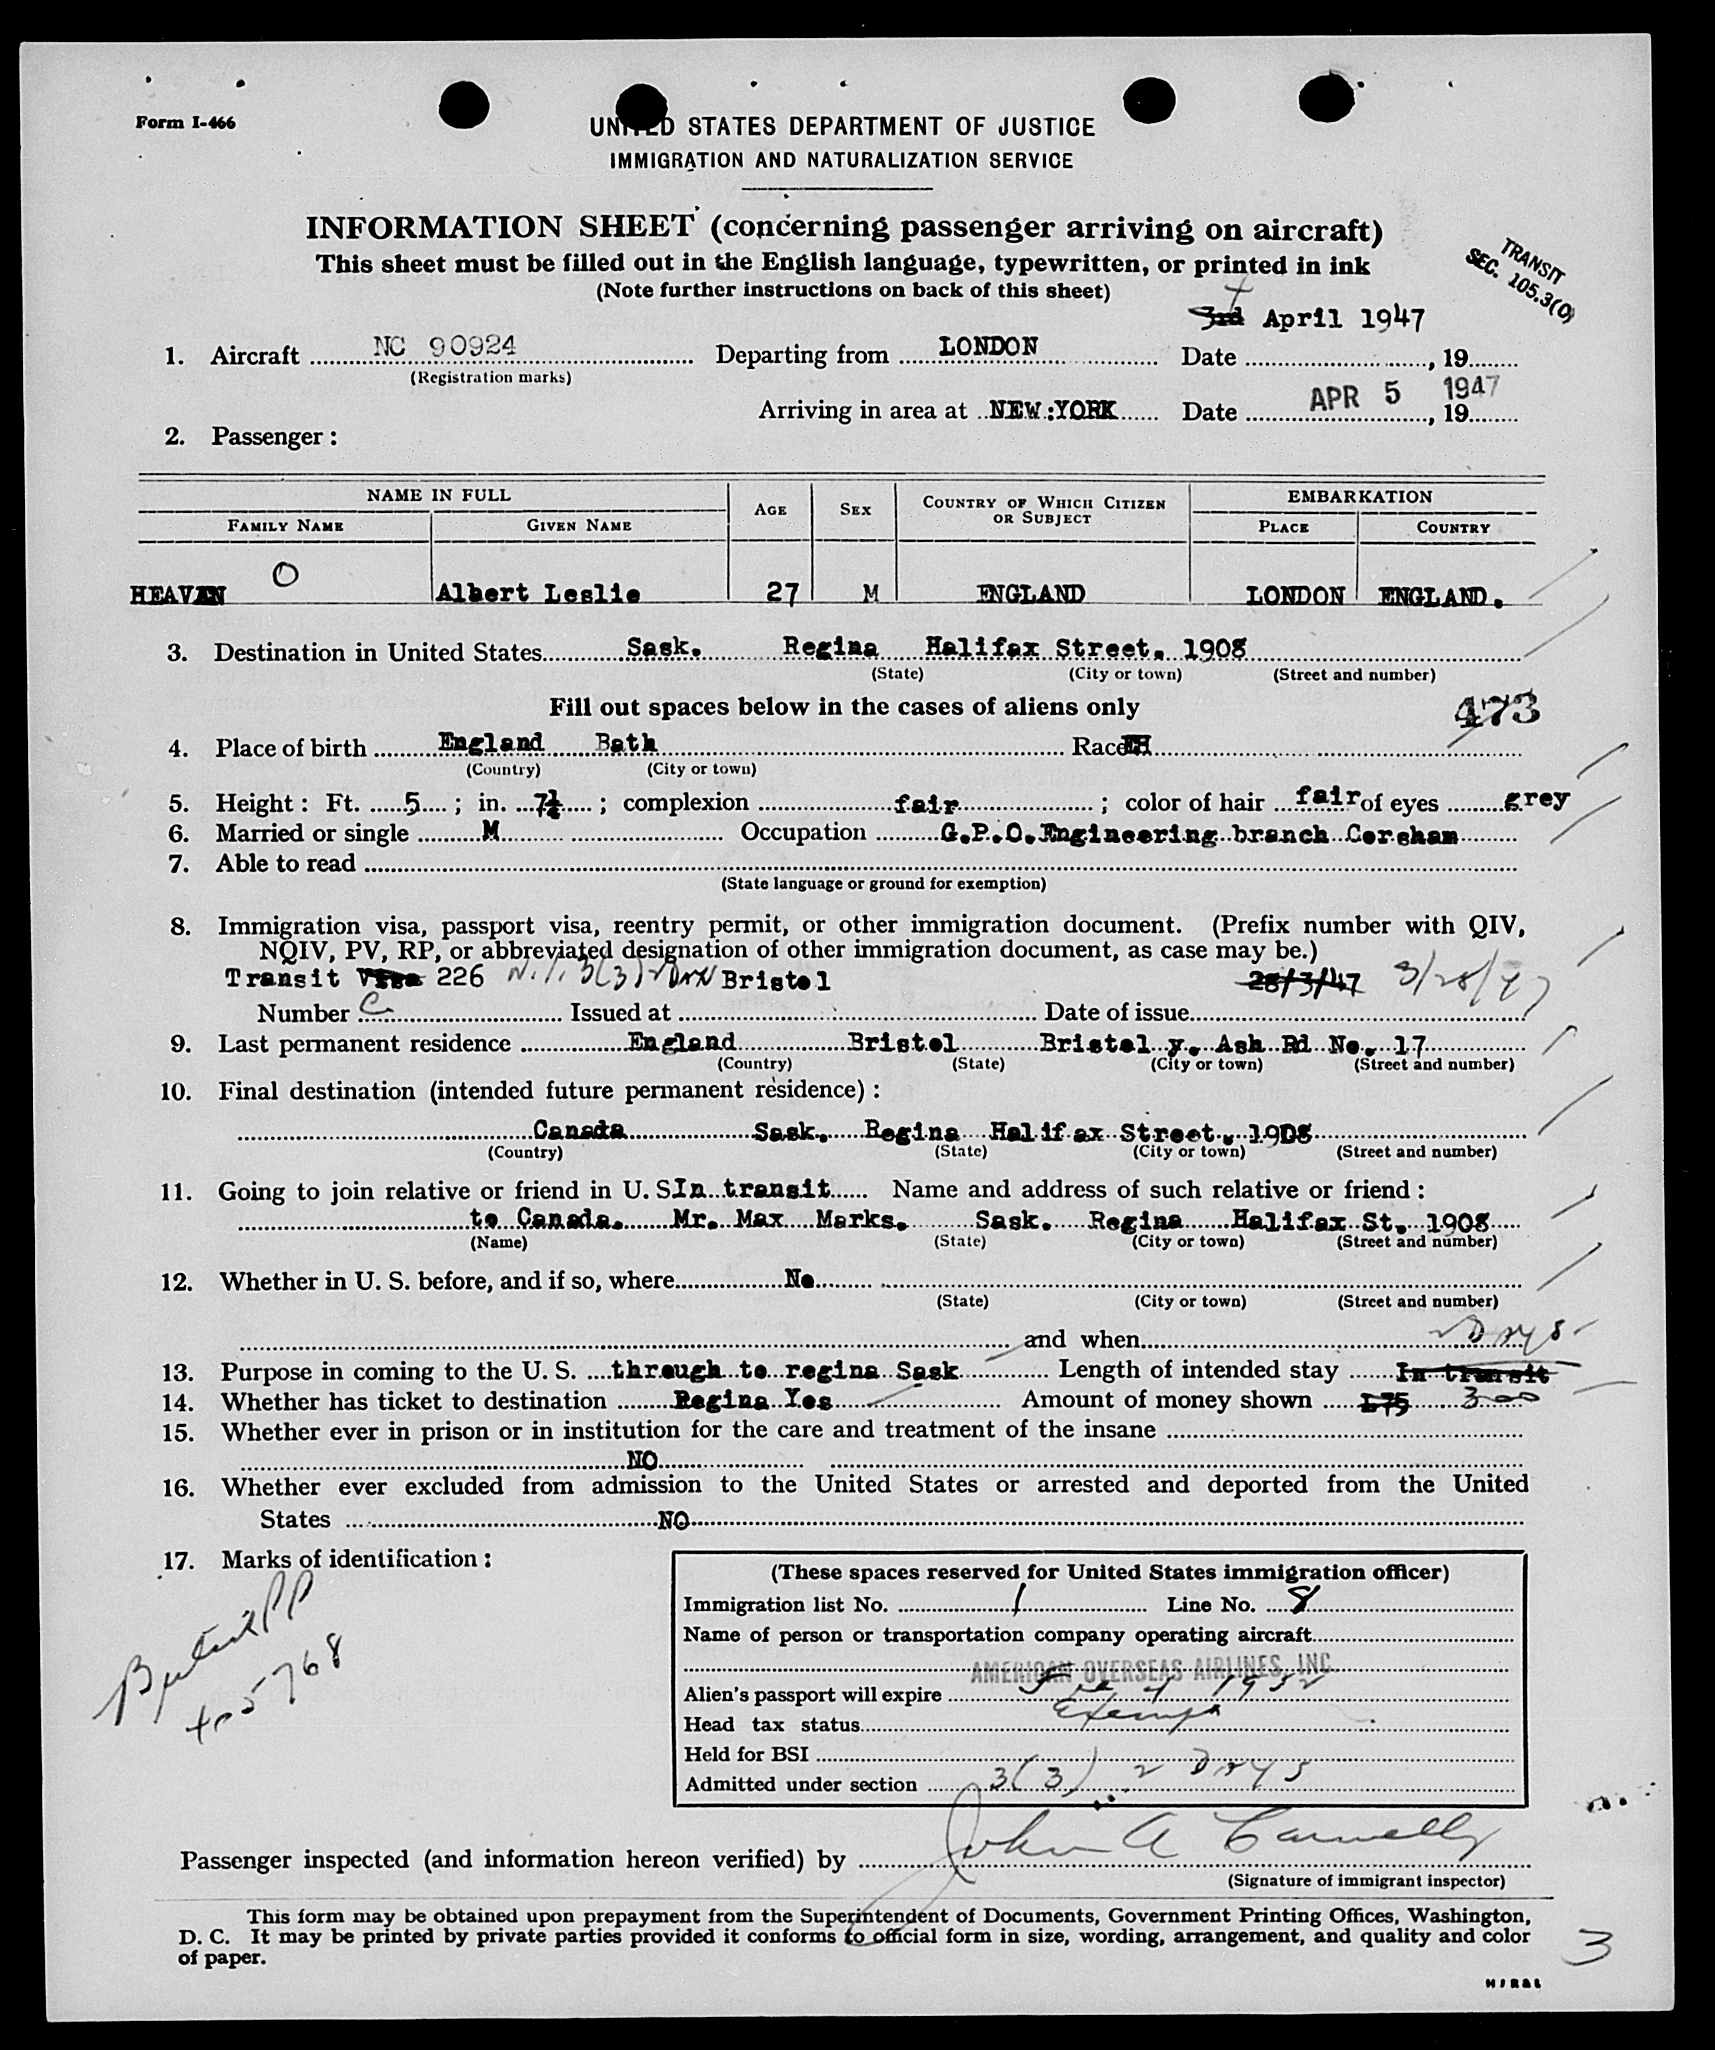 Form I-466
UNITED STATES DEPARTMENT OF JUSTICE
IMMIGRATION AND NATURALIZATION SERVICE
INFORMATION SHEET (concerning passenger arriving on aircraft)
This sheet must be filled out in the English language, typewritten, or printed in ink
(Note further instructions on back of this sheet)
TRANSIT
SEC. 105.3(0)
4
3rd April 1947
1. Aircraft NC 90924 Departing from LONDON Date , 19
(Registration marks)
Arriving in area at NEW YORK Date APR 5 1947 , 19
2. Passenger:
NAME IN FULL AGE SEX COUNTRY OF WHICH CITIZEN OR SUBJECT EMBARKATION
FAMILY NAME GIVEN NAME PLACE COUNTRY
O
HEAVEN Albert Leslie 27 M ENGLAND LONDON ENGLAND.
3. Destination in United States Sask. Regina Halifax Street. 1908
(State) (City or town) (Street and number)
Fill out spaces below in the cases of aliens only
473
4. Place of birth England Bath Race
(Country) (City or town)
5. Height: Ft. 5; in. 7½; complexion fair; color of hair fair of eyes grey
6. Married or single M Occupation G.P.O. Engineering branch Corsham
7. Able to read
(State language or ground for exemption)
8. Immigration visa, passport visa, reentry permit, or other immigration document. (Prefix number with QIV,
NQIV, PV, RP, or abbreviated designation of other immigration document, as case may be.)
Transit Visa 226 3(3) Bristol 28/3/47 3/28/47
Number C Issued at Date of issue
9. Last permanent residence England Bristol Bristol y. Ash Rd No. 17
(Country) (State) (City or town) (Street and number)
10. Final destination (intended future permanent residence):
Canada Sask. Regina Halifax Street. 1908
(Country) (State) (City or town) (Street and number)
11. Going to join relative or friend in U. S. In transit Name and address of such relative or friend:
to Canada. Mr. Max Marks. Sask. Regina Halifax St. 1908
(Name) (State) (City or town) (Street and number)
12. Whether in U. S. before, and if so, where No
(State) (City or town) (Street and number)
and when 2 DAYS
13. Purpose in coming to the U. S. through to regina Sask Length of intended stay In transit
14. Whether has ticket to destination Regina Yes Amount of money shown £75 300
15. Whether ever in prison or in institution for the care and treatment of the insane
NO
16. Whether ever excluded from admission to the United States or arrested and deported from the United
States NO
17. Marks of identification:
British PP
405768
(These spaces reserved for United States immigration officer)
Immigration list No. 1 Line No. 8
Name of person or transportation company operating aircraft
AMERICAN OVERSEAS AIRLINES, INC.
Alien's passport will expire 4 1952
Head tax status Exempt
Held for BSI
Admitted under section 3(3) 2 DAYS
Passenger inspected (and information hereon verified) by John A Connelly
(Signature of immigrant inspector)
This form may be obtained upon prepayment from the Superintendent of Documents, Government Printing Offices, Washington,
D. C. It may be printed by private parties provided it conforms to official form in size, wording, arrangement, and quality and color
of paper.
3